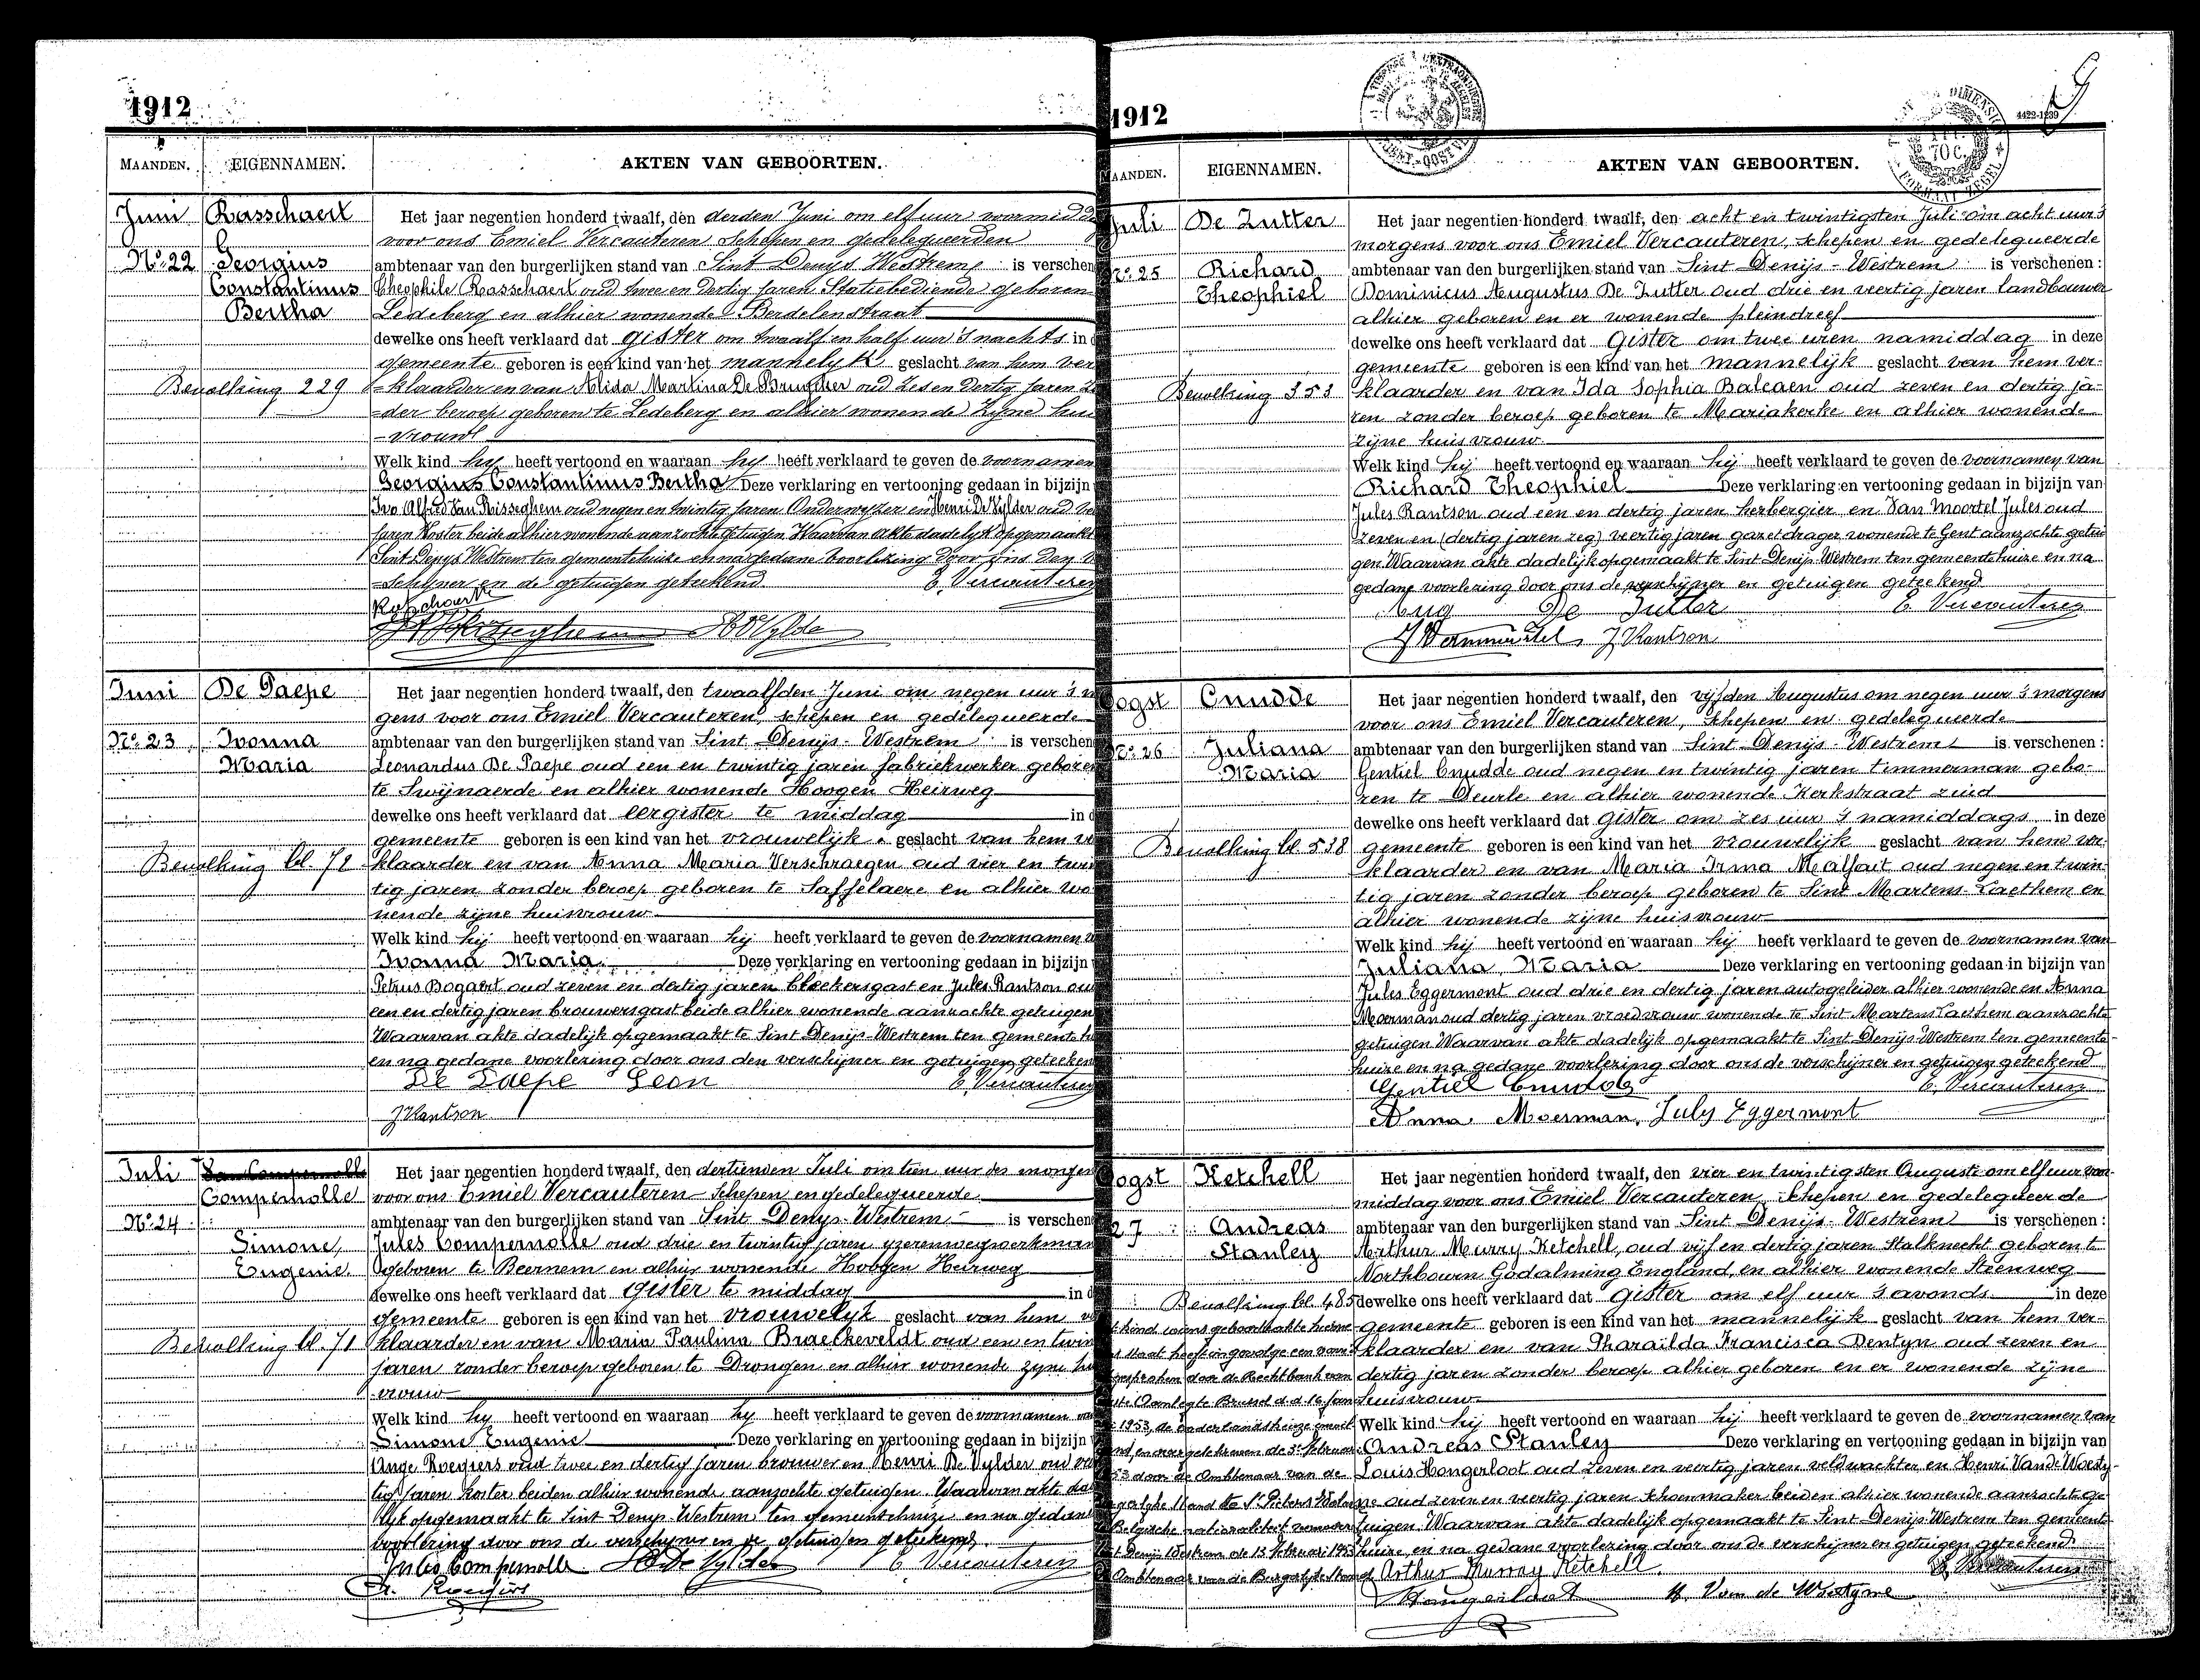 1912
MAANDEN. EIGENNAMEN. AKTEN VAN GEBOORTEN.
Juni Rasschaert
No. 22 Georgius
Constantinus
Bertha
Bevolking 229
Het jaar negentien honderd twaalf, den derden Juni om elf uur voormidda
voor ons Emiel Vercauteren schepen en gedelegueerden
ambtenaar van den burgerlijken stand van Sint Denys Westrem is verschen
Theophile Rasschaert oud twee en dertig jaren Statiebediende geboren
Ledeberg en alhier wonende Berdelenstraat
dewelke ons heeft verklaard dat gister om twaalf en half uur 's nachts in d
gemeente geboren is een kind van het mannelyk geslacht van hem ver
=klaarder en van Alida Martina De Bruycker oud zes en dertig jaren zo
=der beroep geboren te Ledeberg en alhier wonende zyne hui
=vrouw
Welk kind hy heeft vertoond en waaraan hy heeft verklaard te geven de voornamen
Georgius Constantinus Bertha Deze verklaring en vertooning gedaan in bijzijn
Ivo Alfred Van Risseghem oud negen en twintig jaren Onderwyzer en Henri De Vylder oud
jaren Koster beide alhier wonende aanzochte getuigen Waarvan akte dadelyk opgemaakt
Sint Denys Westrem ten gemeentehuize en na gedane voorlezing door ons den v
=schyner en de getuigen geteekend E. Vercauteren
Rasschaert
H De Vylder
Juni De Paepe
No. 23 Ivonna
Maria
Bevolking bl. 72
Het jaar negentien honderd twaalf, den twaalfden Juni om negen uur 's m
gens voor ons Emiel Vercauteren, schepen en gedelegueerde
ambtenaar van den burgerlijken stand van Sint Denijs-Westrem is verschen
Leonardus De Paepe oud een en twintig jaren fabriekwerker geboren
te Swijnaerde en alhier wonende Hoogen Heirweg
dewelke ons heeft verklaard dat eergister te middag in d
gemeente geboren is een kind van het vrouwelijk geslacht van hem ve
klaarder en van Anna Maria Verschraegen oud vier en twin
tig jaren zonder beroep geboren te Saffelaere en alhier wo
nende zijne huisvrouw
Welk kind hij heeft vertoond en waaraan hij heeft verklaard te geven de voornamen v
Ivonna Maria Deze verklaring en vertooning gedaan in bijzijn
Petrus Bogaert oud zeven en dertig jaren bleekersgast en Jules Rantson oud
een en dertig jaren brouwersgast beide alhier wonende aanzochte getuigen
Waarvan akte dadelijk opgemaakt te Sint Denijs-Westrem ten gemeenteh
en na gedane voorlezing door ons den verschijner en getuigen geteeken
De Paepe Leon E. Vercauteren
J Rantson
Juli Van Compernolle
Compernolle
No. 24
Simone,
Eugenie.
Bevolking bl. 71
Het jaar negentien honderd twaalf, den dertienden Juli om tien uur des morgen
voor ons Emiel Vercauteren Schepen en gedelegueerde
ambtenaar van den burgerlijken stand van Sint Denys-Westrem is verschen
Jules Compernolle oud drie en twintig jaren yzerenwegwerkman
geboren te Beernem en alhier wonende Hoogen Heirweg
dewelke ons heeft verklaard dat gister te middag in d
gemeente geboren is een kind van het vrouwelyk geslacht van hem ve
klaarder en van Maria Paulina Braeckeveldt oud een en twin
jaren zonder beroep geboren te Drongen en alhier wonende zyne hu
vrouw
Welk kind hy heeft vertoond en waaraan hy heeft verklaard te geven de voornamen va
Simone Eugenie Deze verklaring en vertooning gedaan in bijzijn v
Ange Roegiers oud twee en dertig jaren brouwer en Henri De Vylder oud
tig jaren koster beiden alhier wonende aanzochte getuigen Waarvan akte dad
lyk opgemaakt te Sint Denys-Westrem ten gemeentehuize en na gedane
voorlezing door ons de verschyner en de getuigen geteekend.
Jules Compernolle H De Vylder E. Vercauteren
A. Roegiers
1912
4422-1239
70 C.
MAANDEN. EIGENNAMEN. AKTEN VAN GEBOORTEN.
Juli De Zutter
No. 25 Richard
Theophiel
Bevolking 353
Het jaar negentien honderd twaalf, den acht en twintigsten Juli om acht uur 's
morgens voor ons Emiel Vercauteren, schepen en gedelegueerde
ambtenaar van den burgerlijken stand van Sint Denijs-Westrem is verschenen:
Dominicus Augustus De Zutter oud drie en veertig jaren landbouwer
alhier geboren en er wonende pleindreef
dewelke ons heeft verklaard dat gister om twee uren namiddag in deze
gemeente geboren is een kind van het mannelijk geslacht van hem ver-
klaarder en van Ida Sophia Balcaen oud zeven en dertig ja-
ren zonder beroep geboren te Mariakerke en alhier wonende
zijne huisvrouw
Welk kind hij heeft vertoond en waaraan hij heeft verklaard te geven de voornamen van
Richard Theophiel Deze verklaring en vertooning gedaan in bijzijn van
Jules Rantson oud een en dertig jaren herbergier en Van Moortel Jules oud
zeven en (dertig jaren zeg) veertig jaren gazetdrager wonende te Gent aanzochte getui
gen Waarvan akte dadelijk opgemaakt te Sint Denijs-Westrem ten gemeentehuize en na
gedane voorlezing door ons de verschijner en getuigen geteekend
Aug De Zutter E. Vercauteren
J Rantson
Oogst Cnudde
No. 26 Juliana
Maria
Bevolking bl. 538
Het jaar negentien honderd twaalf, den vijfden Augustus om negen uur 's morgens
voor ons Emiel Vercauteren, schepen en gedelegueerde
ambtenaar van den burgerlijken stand van Sint Denijs-Westrem is verschenen:
Gentiel Cnudde oud negen en twintig jaren timmerman gebo-
ren te Deurle en alhier wonende Kerkstraat zuid
dewelke ons heeft verklaard dat gister om zes uur 's namiddags in deze
gemeente geboren is een kind van het vrouwelijk geslacht van hem ver-
klaarder en van Maria Irma Malfait oud negen en twin-
tig jaren zonder beroep geboren te Sint Martens-Laethem en
alhier wonende zijne huisvrouw
Welk kind hij heeft vertoond en waaraan hij heeft verklaard te geven de voornamen van
Juliana Maria Deze verklaring en vertooning gedaan in bijzijn van
Jules Eggermont oud drie en dertig jaren autogeleider alhier wonende en Anna
Moerman oud dertig jaren vroedvrouw wonende te Sint Martens Laethem aanzochte
getuigen Waarvan akte dadelijk opgemaakt te Sint Denijs-Westrem ten gemeente-
huize en na gedane voorlezing door ons de verschijner en getuigen geteekend
Gentiel Cnudde E. Vercauteren
Anna Moerman. July Eggermont
Oogst Ketchell
27 Andreas
Stanley
Bevolking bl. 485
t kind wiens geboorteakte hierne
Staat heeft ingevolge een vonn
gesproken door de Rechtbank van
ste Aanleg te Brussel d.d. 16 Jan
1953, de
en overgeschreven de 3e Februari
53 door de Ambtenaar van de
gerlijke Stand te St Pieters Wolu
Belgische nationaliteit
t Denijs Westrem de 13 Februari 1953
Ambtenaar van de Burgerlijke Stand
Het jaar negentien honderd twaalf, den vier en twintigsten Auguste om elf uur voor-
middag voor ons Emiel Vercauteren, schepen en gedelegueerde
ambtenaar van den burgerlijken stand van Sint Denijs-Westrem is verschenen:
Arthur Murry Ketchell, oud vijf en dertig jaren Stalknecht geboren te
Northbourn Godalming England, en alhier wonende Steenweg
dewelke ons heeft verklaard dat gister om elf uur 's avonds in deze
gemeente geboren is een kind van het mannelijk geslacht van hem ver-
klaarder en van Pharaïlda Francisca Dentyn oud zeven en
dertig jaren zonder beroep alhier geboren en er wonende zijne
huisvrouw
Welk kind hij heeft vertoond en waaraan hij heeft verklaard te geven de voornamen van
Andreas Stanley Deze verklaring en vertooning gedaan in bijzijn van
Louis Hongerloot oud zeven en veertig jaren veldwachter en Henri Van de Woesty-
ne oud zeven en veertig jaren schoenmaker beiden alhier wonende aanzochte ge-
tuigen. Waarvan akte dadelijk opgemaakt te Sint Denijs-Westrem ten gemeente-
huize, en na gedane voorlezing door ons de verschijner en getuigen geteekend.
Arthur Murray Ketchell. E. Vercauteren
Hongerloot H. Van de Woestyne